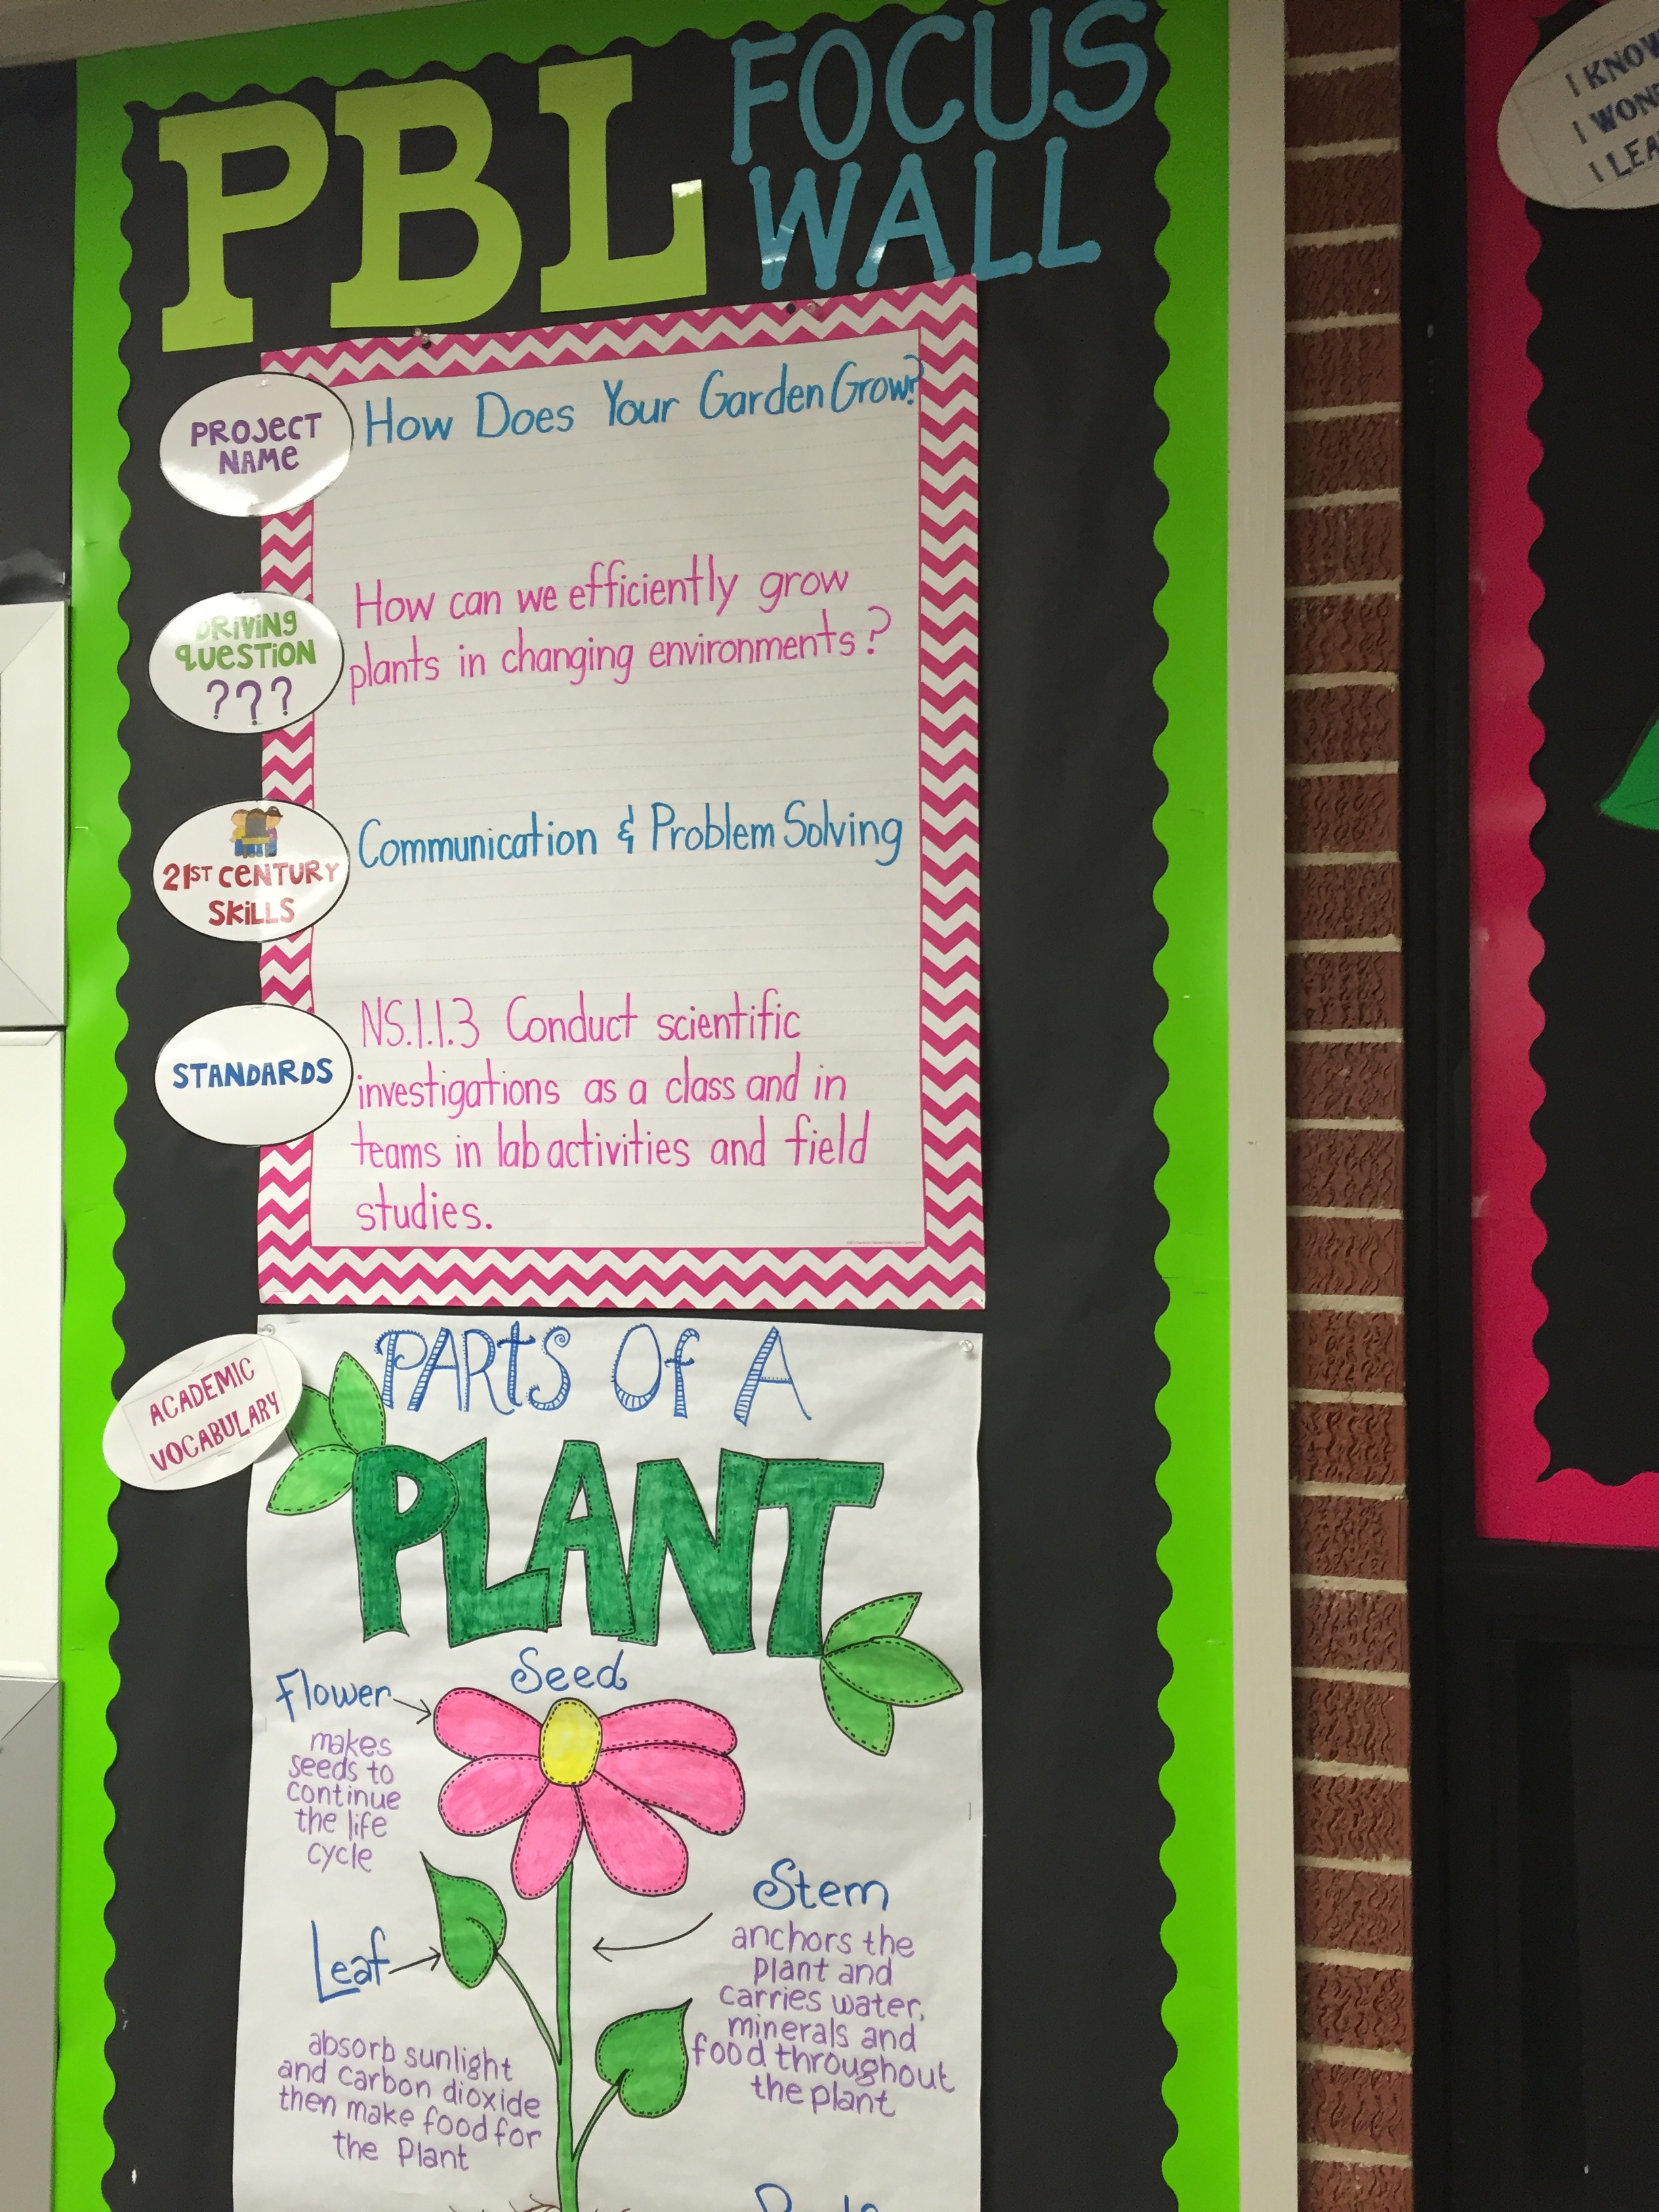 PBL
FOCUS
WALL
PROJECT
NAME
How Does Your Garden Grow?
DRIVING
QUESTION
???
How can we efficiently grow
plants in changing environments?
21ST CENTURY
SKILLS
Communication & Problem Solving
STANDARDS
NS.1.1.3 Conduct scientific
investigations as a class and in
teams in lab activities and field
studies.
ACADEMIC
VOCABULARY
PARTS OF A
PLANT
Seed
Flower
makes
seeds to
continue
the life
cycle
Leaf
absorb sunlight
and carbon dioxide
then make food for
the Plant
Stem
anchors the
Plant and
carries water,
minerals and
food throughout
the plant
I KNOW
I
I